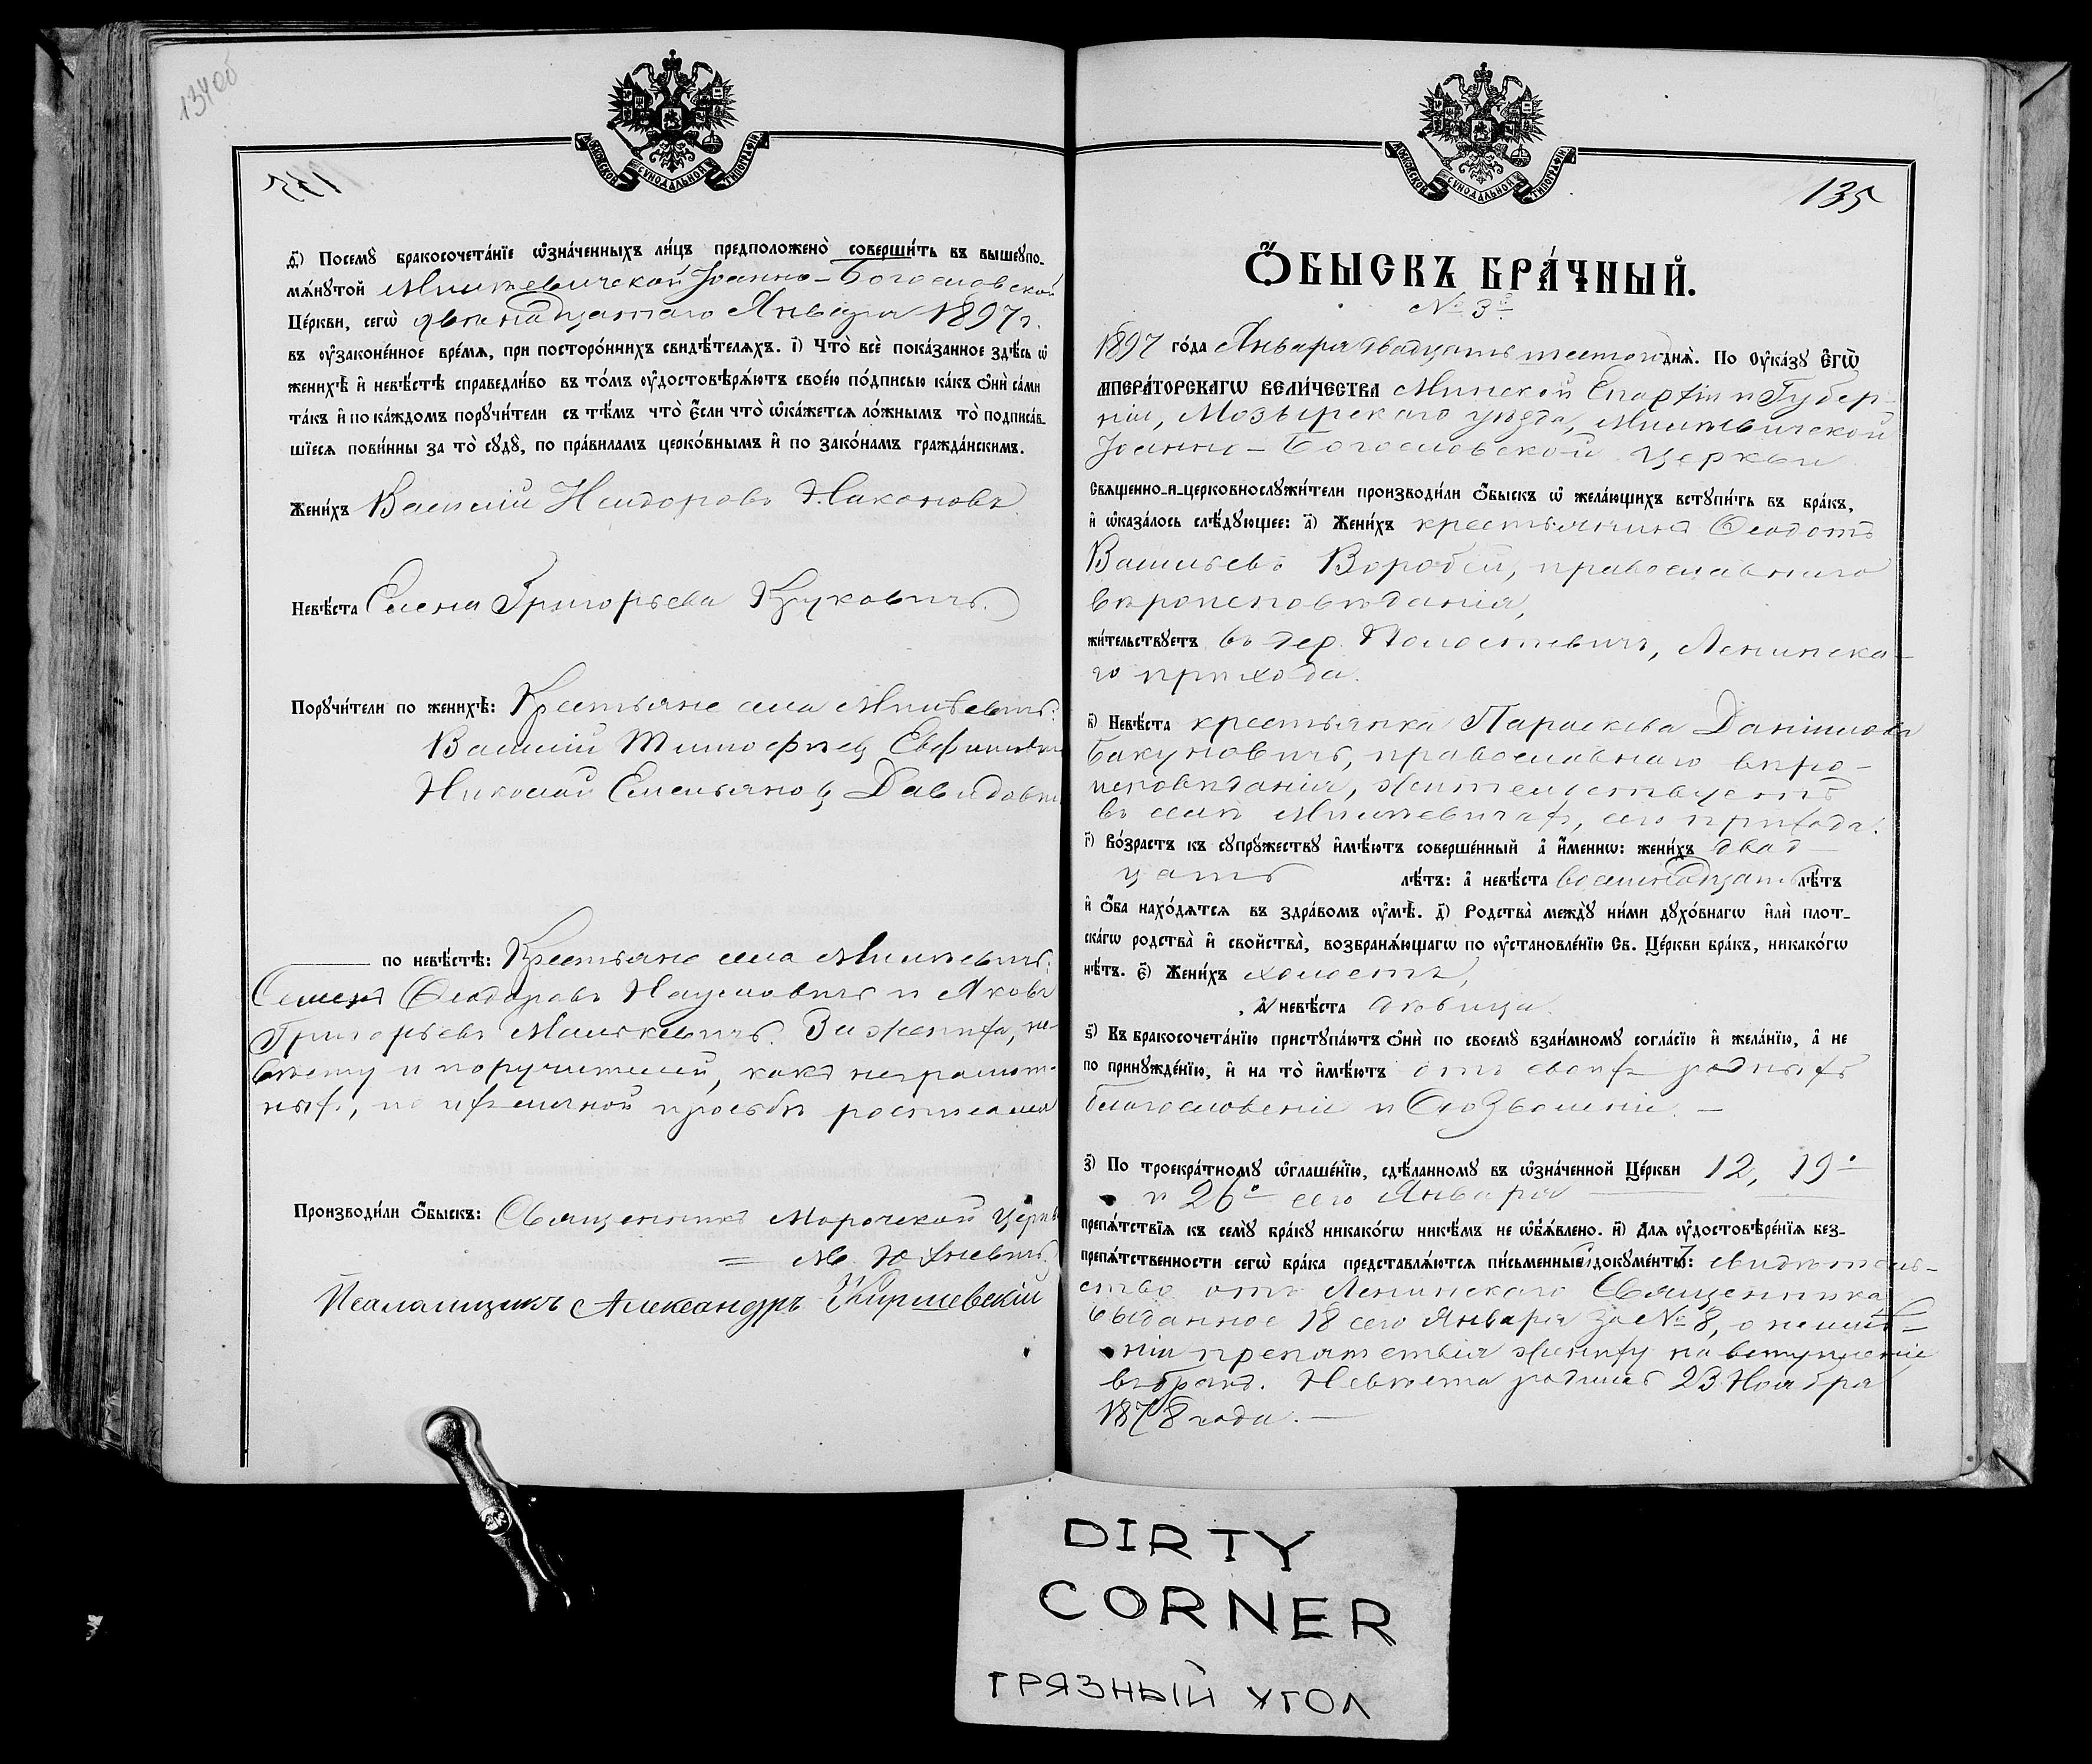 134об
МОСКОВСКОЙ СѴНОДАЛЬНОЙ ТИПОГРАФІИ
д҃) Посемꙋ̀ бракосочета́нїе ѡ҆зна́ченныхъ ли́цъ предположено̀ соверши́ть въ вышеꙋпо-
мѧ́нꙋтой Милевичской Іоанно-Богословской
Це́ркви, сегѡ̀ двенадцатаго Января 1897 г.
въ ᲂу҆законе́нное вре́мѧ, при посторо́ннихъ свидѣ́телѧхъ. і҃) Что̀ всѐ пока́занное здѣ́сь ѡ҆
женихѣ̀ и҆ невѣ́стѣ справедли́во въ то́мъ ᲂу҆достовѣрѧ́ютъ свое́ю по́дписью ка́къ ѻ҆нѝ са́ми
та́къ и҆ по ка́ждомъ порꙋчи́тели съ тѣ́мъ что̀ є҆́сли что̀ ѡ҆ка́жетсѧ ло́жнымъ то̀ подписа́в-
шїесѧ пови́нны за то̀ сꙋдꙋ̀, по пра́виламъ церко́внымъ и҆ по зако́намъ гражда́нскимъ.
Жени́хъ Василій Исидоровъ Никоновъ
Невѣ́ста Елена Григорьева Круковичъ.
Порꙋчи́тели по женихѣ̀: Крестьяне села Милевичъ:
Василій Тимофеевъ
Николай Емельяновъ Давидович
по невѣ́стѣ: Крестьяне села Милевичъ:
Семенъ Ѳеодоровъ Наумовичъ и Яковъ
Григорьевъ За жениха, не-
вѣсту и поручителей, какъ неграмот-
ныхъ, по ихъ личной просьбѣ росписался
Производи́ли ѻ҆́быскъ: Священникъ Морочской церкви
М. Юхневичъ.
Псаломщикъ Александръ Киржевскій
МОСКОВСКОЙ СѴНОДАЛЬНОЙ ТИПОГРАФІИ
135
Ѻ҆́БЫСКЪ БРА́ЧНЫЙ.
№ 3й
1897 го́да Января двадцать шестого днѧ̀. По ᲂу҆ка́зꙋ є҆гѡ̀
и҆мпера́торскагѡ вели́чества Минской Епархіи и Губер-
ніи, Мозырскаго уѣзда, Милевичской
Іоанно-Богословской церкви
Свѧщенно-и-церковнослꙋжи́тели производи́ли ѻ҆́быскъ ѡ҆ жела́ющихъ встꙋпи́ть въ бра́къ,
и҆ ѡ҆каза́лось слѣ́дꙋющее: а҃) Жени́хъ крестьянинъ Ѳеодотъ
Васильевъ Воробей, православнаго
вѣроисповѣданія,
жи́тельствꙋетъ въ дер. Полостевичи, Ленинска-
го прихода.
в҃) Невѣ́ста крестьянка Параскева Даніилова
Бакуновичъ, православнаго вѣро-
исповѣданія, жительствуетъ
въ селѣ Милевичахъ, сего прихода.
г҃) Во́зрастъ къ сꙋпрꙋ́жествꙋ и҆мѣ́ютъ соверше́нный а҆̀ и҆́меннѡ: жени́хъ двад-
цать лѣ́тъ: а҆̀ невѣ́ста восемнадцать лѣ́тъ
и҆ ѻ҆́ба нахо́дѧтсѧ въ здра́вомъ ᲂу҆мѣ̀. д҃) Родства̀ междꙋ̀ ни́ми дꙋхо́внагѡ и҆лѝ плот-
ска́гѡ родства̀ и҆ свойства̀, возбранѧ́ющагѡ по ᲂу҆становле́нїю Св. Це́ркви бра́къ, никако́гѡ
нѣ́тъ. є҃) Жени́хъ холостъ,
а҆̀ невѣ́ста дѣвица.
ѕ҃) Въ бракосочета́нїю пристꙋпа́ютъ ѻ҆нѝ по своемꙋ̀ взаи́мномꙋ согла́сїю и҆ жела́нїю, а҆̀ не
по принꙋжде́нїю, и҆ на то̀ и҆мѣ́ютъ отъ своихъ родныхъ
благословеніе и созволеніе. —
з҃) По троекра́тномꙋ ѡ҆глаше́нїю, сдѣ́ланномꙋ въ ѡ҆зна́ченной Це́ркви 12, 19о
и 26о сего Января
препѧ́тствїѧ къ семꙋ̀ бра́кꙋ никако́гѡ никѣ́мъ не ѡ҆б̾ѧ́влено. и҃) Длѧ ᲂу҆достовѣре́нїѧ без-
препѧ́тственности сегѡ̀ бра́ка представлѧ́ютсѧ пи́сьменные докꙋме́нты: свидѣтель-
ство отъ Ленинскаго Священника,
выданное 18 сего Января за № 8, о неимѣ-
ніи препятствія жениху на вступленіе
въ бракъ. Невѣста родилась 23 Ноября
1878 года. —
DIRTY
CORNER
ГРЯЗНЫЙ УГОЛ